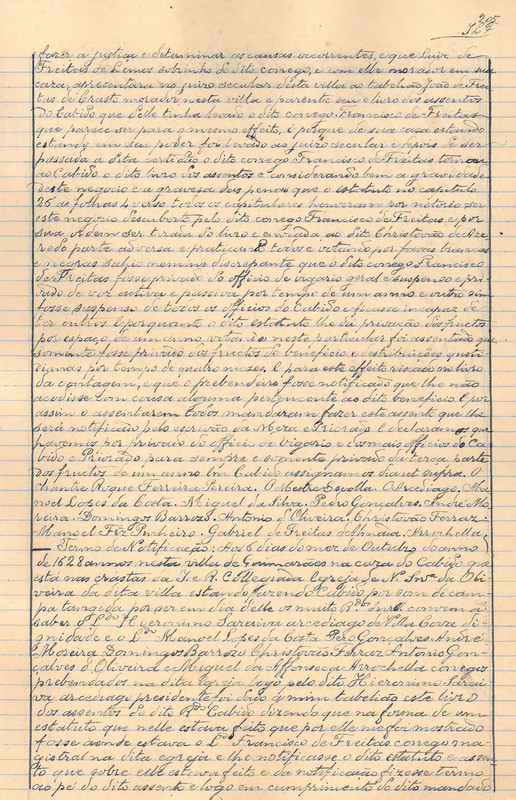 205
fazer a justiça e determinar as causas occorrentes, e que Luiz de
Freitas de Lemos sobrinho do dito conego, e com elle morador em sua
caza, apresentara no juizo secular desta villa ao tabelião João de Frei
tas de Crasto morador nesta villa e parente seu o livro dos assentos
do Cabido que delle tinha levado o dito conego Francisco de Freitas
que parece ser para o mesmo effeito, e porque de sua caza estando
estando em seu poder foi levado ao juizo secular e depois de ser
passada a dita certidão o dito conego Francisco de Freitas tornou
ao Cabido o dito livro dos assentos e considerando bem a gravidade
deste negocio e a graveza das penas que o estatuto no capitulo
26 as folhas 4 verso todos os capitulares houveram por notorio ser
este negocio descuberto pelo dito conego Francisco de Freitas e por
sua ordem ser tirado do livro e enviada ao dito Christovão de Aze
vedo parte adversa e praticando todos e votando por favas brancas
e negras sahio nemine discrepante que o dito conego Francisco
de Freitas fosse privado do officio de vigario geral e suspenso e pri
vado de voz activa e passiva por tempo de um anno e outro sim
fosse suspenso de todos os officios do Cabido e ficasse incapaz de
ter outros E porquanto o dito estatuto lhe da privação dos fructos
por espaço de um anno votando neste particular foi assentado que
somente fosse privado dos fructos do beneficio e destribuições quoti
dianas por tempo de quatro mezes, E para este effeito riscado no livro
da contagem, e que o prebendeiro fosse notificado que lhe não
acodisse com cousa alguma pertencente ao dito beneficio E por
assim o assentarem todos mandaram fazer este assento que lhe
será notificado pelo escrivão da Meza e Priorado E declaramos que
havemos por privado do officio de vigario e dos mais officios do Ca
bido e Priorado para sempre e somente privado da terça parte
dos fructos de um anno Em Cabido assignamos dia ut supra. O
Chantre Roque Ferreira Pereira. O Mestre Escolla. O Arcediago, Ma
noel Lopes da Costa. Miguel da Silva. Pero Gonçalves. André Mo
reira. Domingos Barrozo. Antonio d'Oliveira. Christovão Ferraz.
Manoel Frz. Pinheiro. Gabriel de Freitas Arrochella
— Termo de Notificação: Aos 6 dias do mez de Outubro do anno
de 1628 annos nesta villa de Guimarães na caza do Cabido que
está nas crastas da I. e R. Collegiada Egreja de N. Snrª. da Oli
veira da dita villa estando fazendo Cabido por som de cam
pa tangida por ser em dia delle os muito Rdos Snrs. convem a
saber o Ldo Hieronimo Saraiva arcediago de Villa Cova di
gnidade e o Ldo Manoel Lopes da Costa Pero Gonçalves André
Moreira Domingos Barrozo Christovão Ferraz Antonio Gon
çalves d'Oliveira e Miguel da Affonseca Arrochella conegos
prebendados na dita Egreja logo pelo dito Hieronimo Sarai
va arcediago presidente foi dado a mim tabelião este livro
dos assentos do dito Rdo Cabido dizendo que na forma de um
estatuto que nelle estava feito que por elle me foi mostrado
fosse aonde estava o Ldo Francisco de Freitas conego ma
gistral na dita egreja e lhe notificasse o dito estatuto e assen
to que sobre elle estava feito e da notificação fizesse termo
ao pé do dito assento e logo em cumprimento do dito mandado